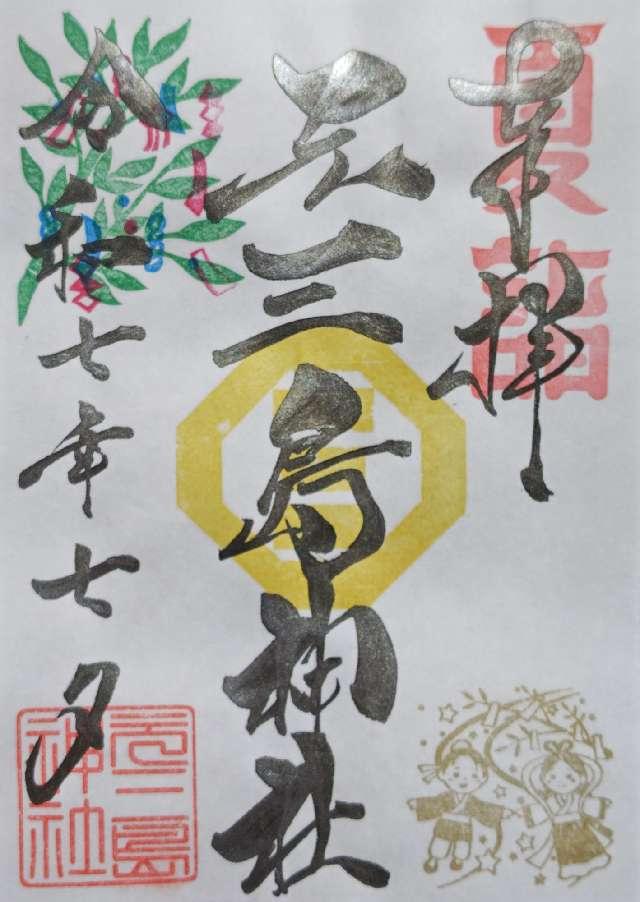 奉拝
夏詣
元三島神社
三
令和七年七夕
元三島
神社